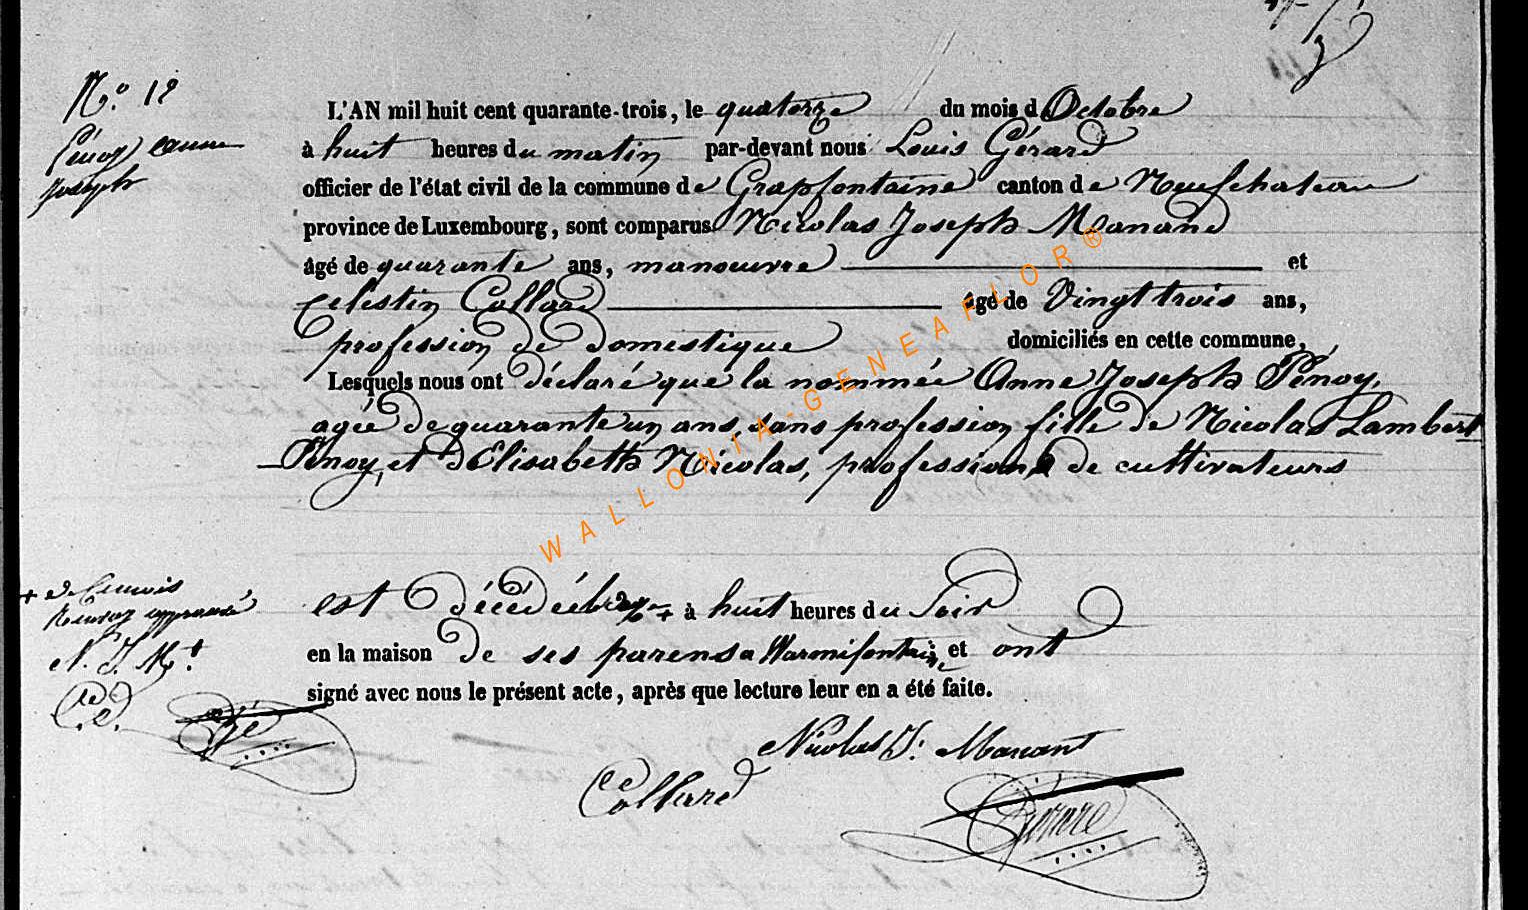 N.o 12
Pénoy anne
Joseph
L'AN mil huit cent quarante-trois, le quatorze du mois d Octobre
à huit heures du matin par-devant nous Louis Gérard
officier de l'état civil de la commune de Grapfontaine canton de Neufchateau
province de Luxembourg, sont comparus Nicolas Joseph Manand
âgé de quarante ans, manoeuvre et
celestin Collard âgé de Vingt trois ans,
profession de domestique domiciliés en cette commune,
Lesquels nous ont déclaré que la nommée Anne Joseph Pénoy,
agée de quarante un ans, sans profession fille de Nicolas Lambert
Pénoy, et d'Elisabeth Nicolas, profession de cultivateurs
est décédée + à huit heures du Soir
en la maison de ses parens a Warmifontaine, et ont
signé avec nous le présent acte, après que lecture leur en a été faite.
+ de ce mois
Renvoi approuvé
N. J. M.t
C.d
Nicolas J. Manant
Collard
Gérard
WALLONIA-GENEAFLOR®